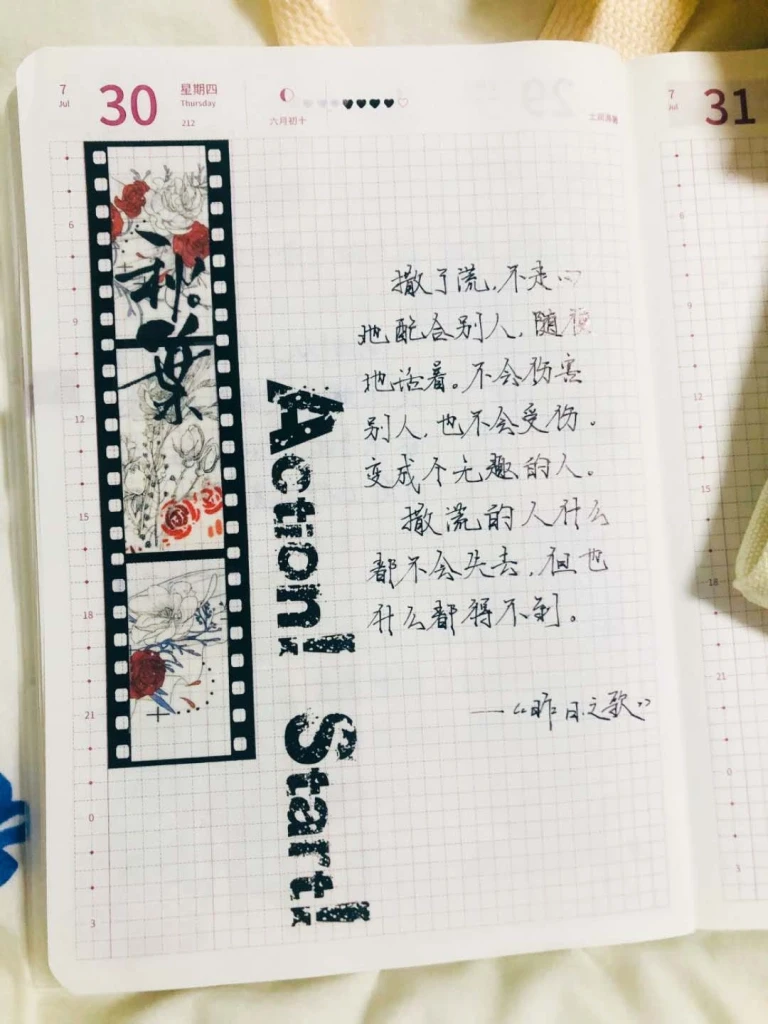 7
Jul
30
星期四
Thursday
212
六月初十
秋葉
Action! Start!
撒了谎,不走心
地配合别人,随便
地活着。不会伤害
别人,也不会受伤。
变成个无趣的人。
撒谎的人什么
都不会失去,但也
什么都得不到。
——“昨日之歌”
6
9
12
15
18
21
0
3
7
Jul
31
6
9
12
15
18
21
0
3